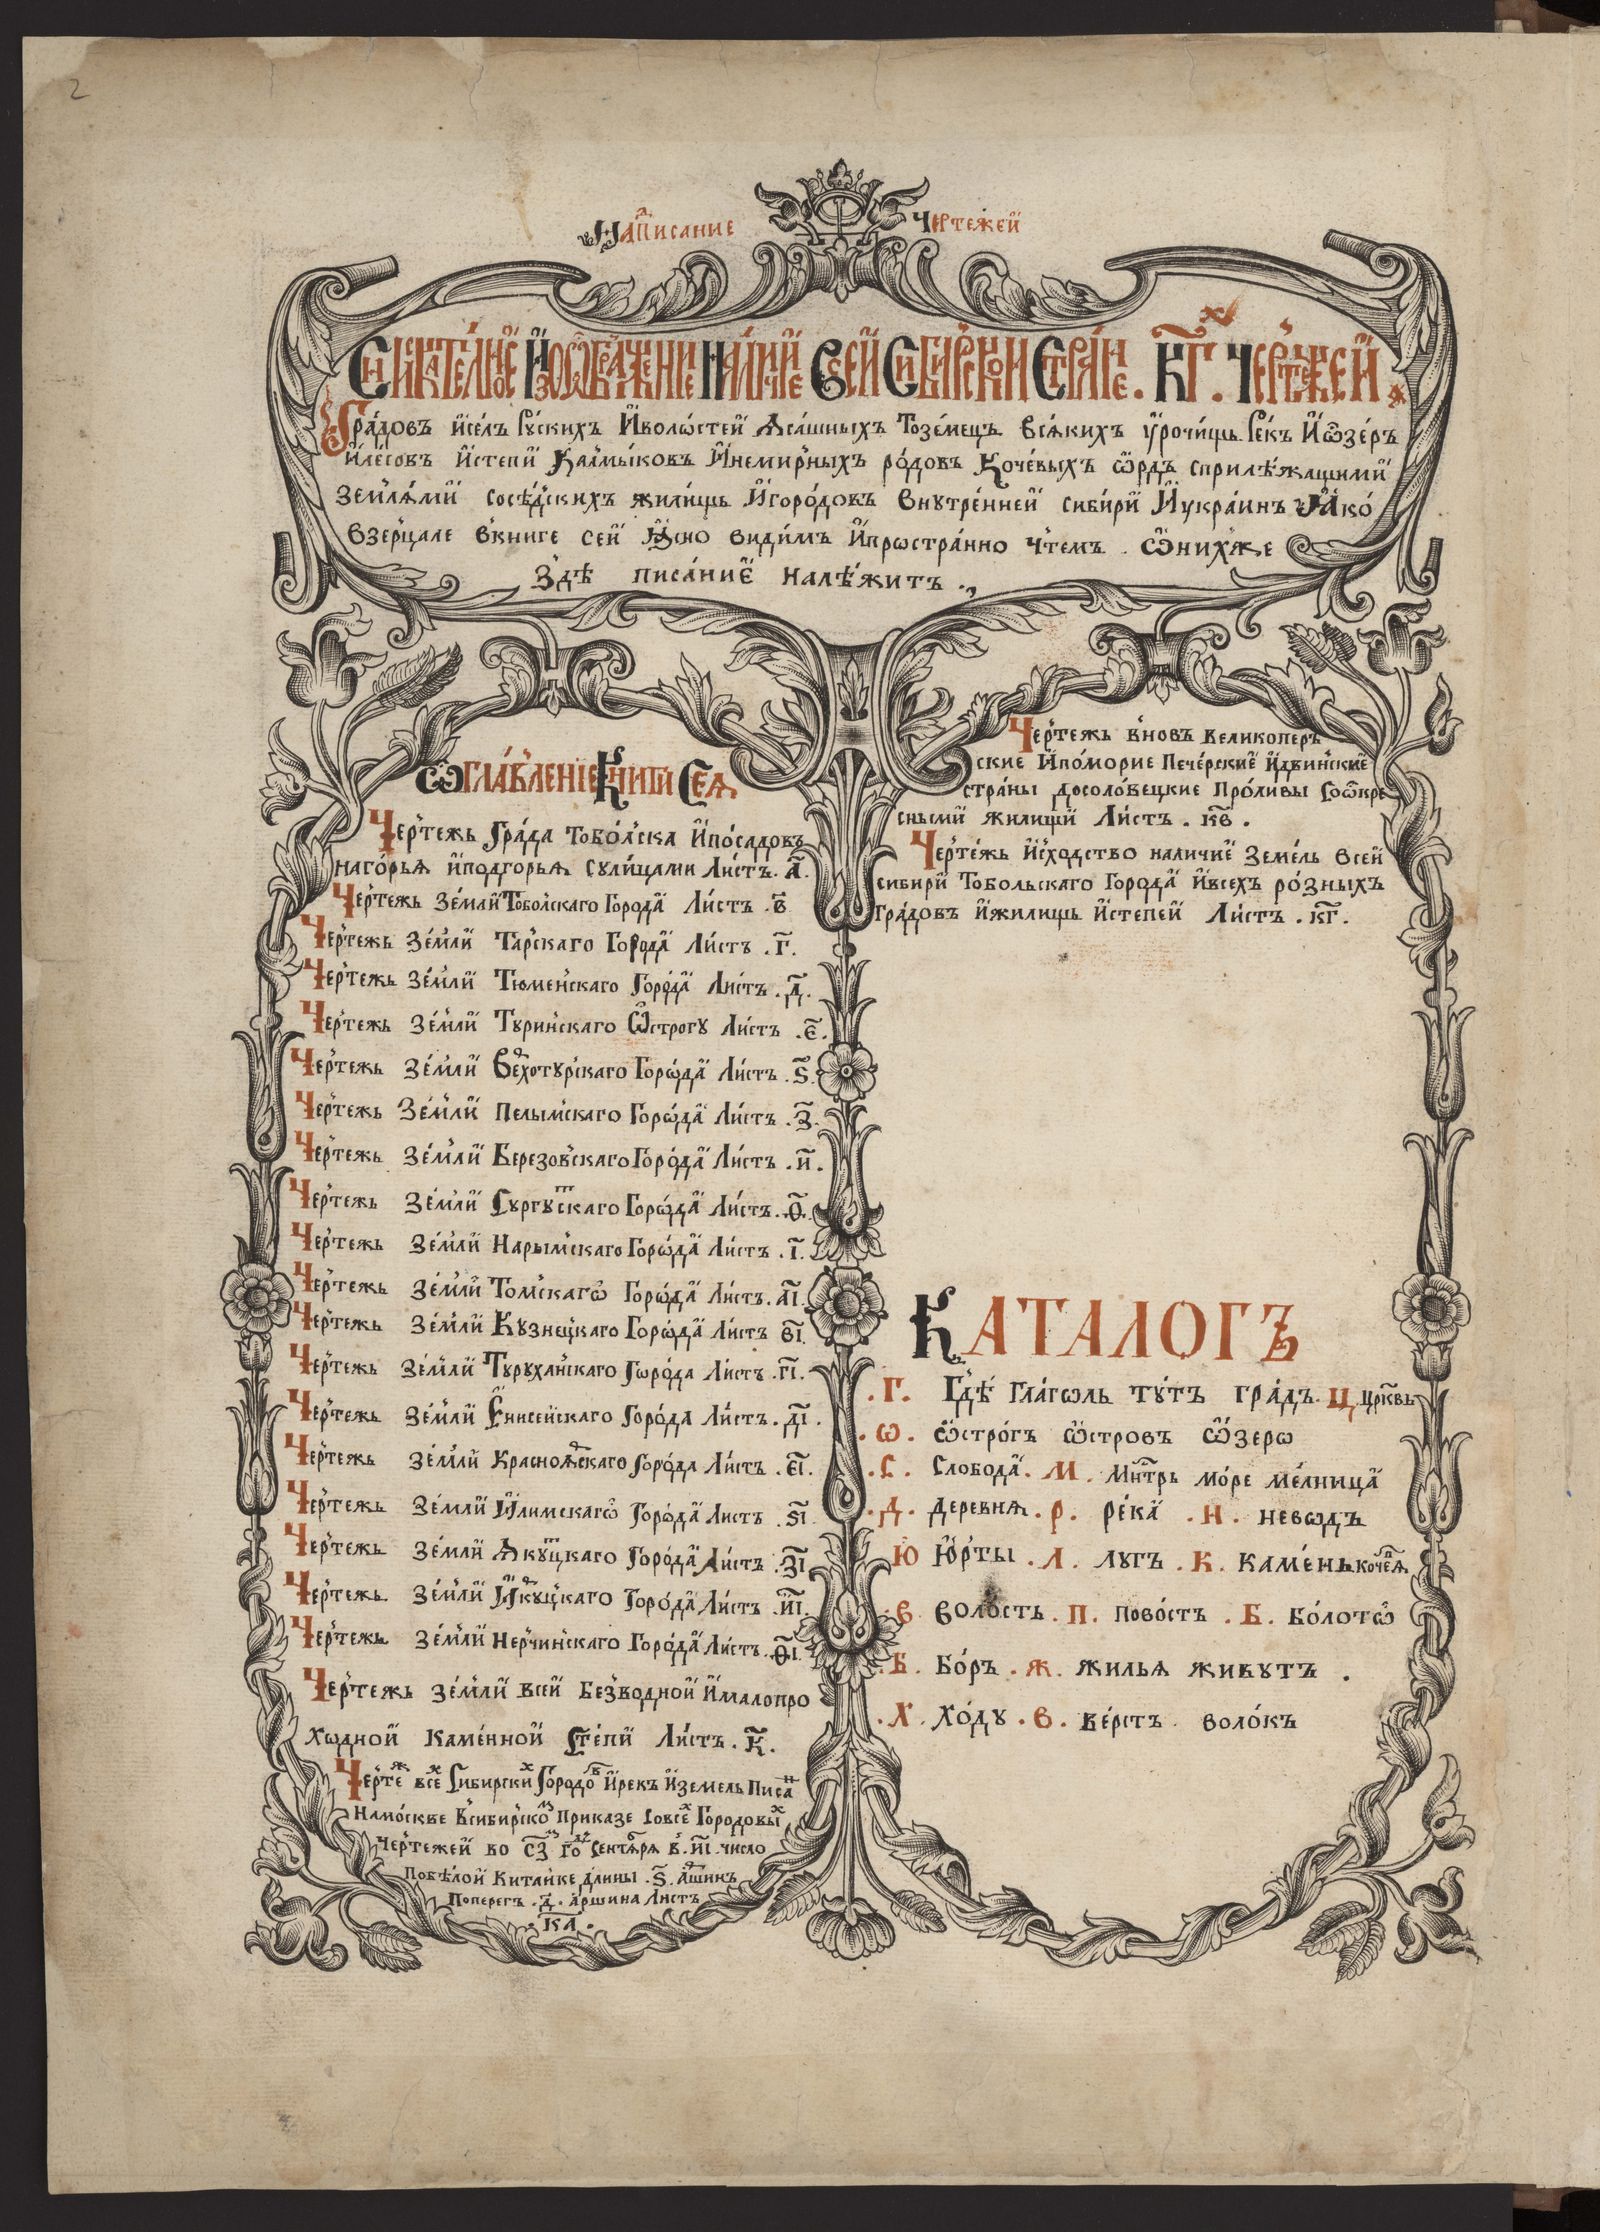 2
Надписание Чертежей
всей Сибирской . к҃г. Чертежей
Градовъ и҆се́лъ Ру́скихъ И҆воло́стей Ꙗса́шныхъ Тозе́мецъ вся́кихъ у҆рочи́щь Ре́къ И҆ѡ҆зе́ръ
и҆лесовъ и҆степи́ Калмы́ковъ И҆немирныхъ ро́довъ Коче́выхъ ѡ҆рдъ сприлѣ́жащими
Земля́ми сосѣ́дскихъ жили́щь И҆горо́довъ внутре́нней сиби́ри И҆украи́нъ Ꙗ҆ко́
взерцале вкниге сей ꙗ҆сно види́мъ и҆прѡстра́нно чтемъ . Ѡ҆нихже
Здѣ писа́ние надлѣ́житъ .,
Ѡ҆главле́ние Книги Сеѧ
Чертежь Гра́да тобо́лска и҆поса́довъ
наго́рьѧ и҆подгорьѧ сули́цами Ли́стъ . а҃ .
Чертежь Зе́мли Тобо́лскаго Города Ли́стъ . в҃
Чертежь Зе́мли Та́рскаго Города Ли́стъ . г҃ .
Чертежь Зе́мли Тюме́нскаго Горо́да Ли́стъ . д҃ .
Чертежь Зе́мли Тури́нскаго Ѡ҆строгу Ли́стъ . є҃ .
Чертежь Зе́мли Верхотурскаго Горѡ́да Ли́стъ . ѕ҃ .
Чертежь Зе́мли Пелы́мскаго Горѡ́да Ли́стъ . з҃ .
Чертежь Зе́мли Березовскаго Горо́да Ли́стъ . и҃ .
Чертежь Зе́мли Сургутскаго Горѡ́да Ли́стъ . ѳ҃ .
Чертежь Зе́мли Нарымскаго Горѡ́да Ли́стъ . і҃ .
Чертежь Зе́мли Томскагѡ Горѡ́да Ли́стъ . а҃і .
Чертежь Зе́мли Кузнецкаго Горѡ́да Ли́стъ в҃і .
Чертежь Зе́мли Туруха́нскаго Гѡро́да Ли́стъ . г҃і .
Чертежь Зе́мли Е҆нисейскаго Горо́да Ли́стъ . д҃і .
Чертежь Зе́мли Красноꙗрскаго Горо́да Ли́стъ . є҃і .
Чертежь Зе́мли И҆лимскагѡ Горо́да Ли́стъ . ѕ҃і
Чертежь Зе́мли Ꙗкутцкаго Горо́да Ли́стъ . з҃і
Чертежь Зе́мли И҆ркуцкаго Горо́да Ли́стъ . и҃і .
Чертежь Зе́мли Нерчинскаго Горо́да Ли́стъ . ѳ҃і .
Чертежь зе́мли всей Безводной и҆малопро
хѡдной Каме́нной Сте́пи Ли́стъ . к҃ .
Чертежъ всех Сибирских Городов И҆рекъ И҆земель Писан
Намоскве Всибирском приказе совсех Городовых
Чертежей во с҃з м году Сентября в . и҃і . число
Побѣлой Китайке длины . ѕ҃ . Аршинъ
Поперегъ . д҃ . аршина Листъ
. КА .
Чертежь вновъ великоперъ
ские И҆помо́рие Пече́рские и҆двинские
стра́ны досолове́цкие Про́ливы Соѡ҆кре
сными жилищи Ли́стъ . к҃в .
Черте́жь и҆схо́дство наличие земе́ль всей
сибири Тобольскаго Города и҆всехъ ро́зныхъ
Градовъ и҆жилищь и҆степей Ли́стъ . к҃г .
КАТАЛОГЪ
. Г . Гдѣ́ гла́голь ту́тъ гра́дъ . Ц . црковь
. Ѡ . ѡ҆стро́гъ ѡ҆стровъ ѡ҆зерѡ
. С . Слобода . М . мнтрь мо́ре ме́лница
. Д . Деревнѧ . Р . река . Н . невѡдъ
Ю Ю҆рты . Л . лугъ . К . Каме́нь кочевѧ
. В волость . П . повостъ . Б . Бо́лотѡ
. Б . Бо́ръ . Ж . жильѧ живутъ .
. Х . хо́ду . В . ве́рстъ . воло́къ